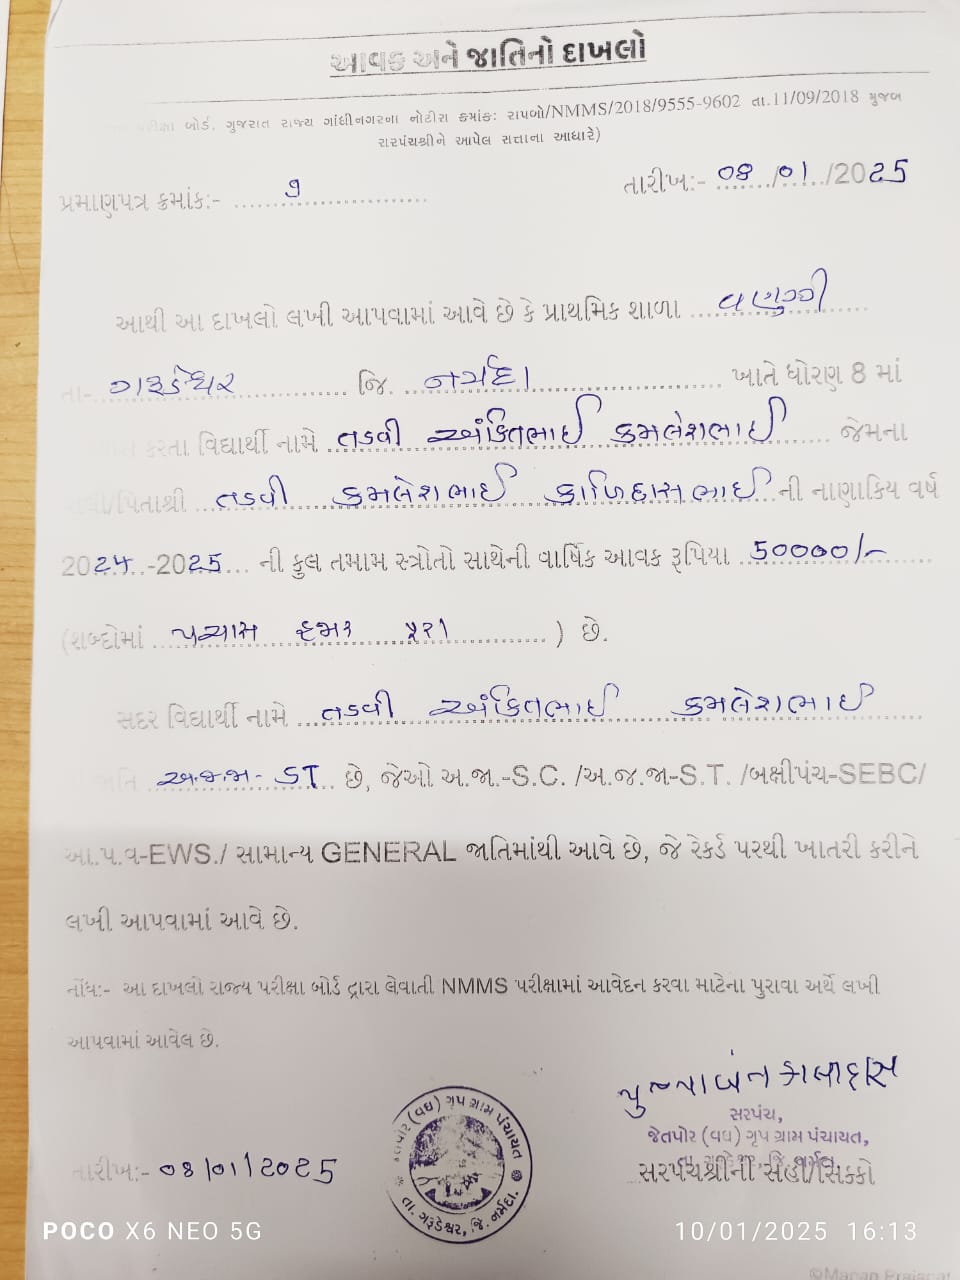 આવક અને જાતિનો દાખલો
પરીક્ષા બોર્ડ, ગુજરાત રાજ્ય ગાંધીનગરના નોટીસ ક્રમાંક: રાપબો/NMMS/2018/9555-9602 તા.11/09/2018 મુજબ
સરપંચશ્રીને આપેલ સત્તાના આધારે)
પ્રમાણપત્ર ક્રમાંક:- ૭
તારીખ:- 08/01/2025
આથી આ દાખલો લખી આપવામાં આવે છે કે પ્રાથમિક શાળા
તા- ગરૂડેશ્વર જિ. નર્મદા ખાતે ધોરણ 8 માં
કરતા વિદ્યાર્થી નામે તડવી અંકિતભાઈ કમલેશભાઈ જેમના
/પિતાશ્રી તડવી કમલેશભાઈ કાળિદાસભાઈ ની નાણાકિય વર્ષ
2024-2025 ની કુલ તમામ સ્ત્રોતો સાથેની વાર્ષિક આવક રૂપિયા 50000/-
(શબ્દોમાં પચાસ હજાર પુરા ) છે.
સદર વિદ્યાર્થી નામે તડવી અંકિતભાઈ કમલેશભાઈ
જાતિ અ.જ.જા- ST છે, જેઓ અ.જા.-S.C. /અ.જ.જા-S.T. /બક્ષીપંચ-SEBC/
આ.પ.વ-EWS./ સામાન્ય GENERAL જાતિમાંથી આવે છે, જે રેકર્ડ પરથી ખાતરી કરીને
લખી આપવામાં આવે છે.
નોંધ:- આ દાખલો રાજ્ય પરીક્ષા બોર્ડ દ્વારા લેવાતી NMMS પરીક્ષામાં આવેદન કરવા માટેના પુરાવા અર્થે લખી
આપવામાં આવેલ છે.
સરપંચ,
જેતપોર (વઘ) ગૃપ ગ્રામ પંચાયત,
સરપંચશ્રીની સહી/સિક્કો
જેતપોર (વઘ) ગૃપ ગ્રામ પંચાયત
તા. ગરૂડેશ્વર, જિ. નર્મદા.
તારીખ:- 08/01/2025
POCO X6 NEO 5G
10/01/2025 16:13